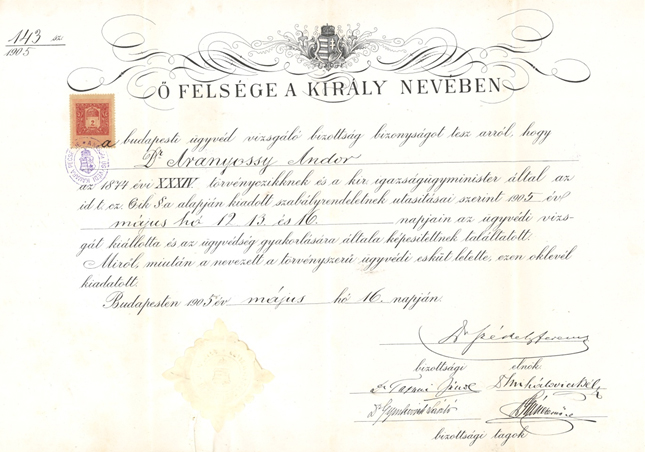 143 sz
1905
Ő FELSÉGE A KIRÁLY NEVÉBEN
a budapesti ügyvéd vizsgáló bizottság bizonyságot tesz arról, hogy
Dr Aranyossy Andor
az 1874 évi XXXIV. törvényczikknek és a kir. igazságügyminister által az
id. t. cz. 6ik §a alapján kiadott szabályrendeletnek utasításai szerint 1905 év
május hó 12. 13. és 16. napjain az ügyvédi vizs-
gát kiállotta és az ügyvédség gyakorlására általa képesítettnek találtatott.
Miről, miután a nevezett a törvényszerű ügyvédi esküt letette, ezen oklevél
kiadatott.
Budapesten 1905 év május hó 16. napján.
bizottsági elnök
bizottsági tagok